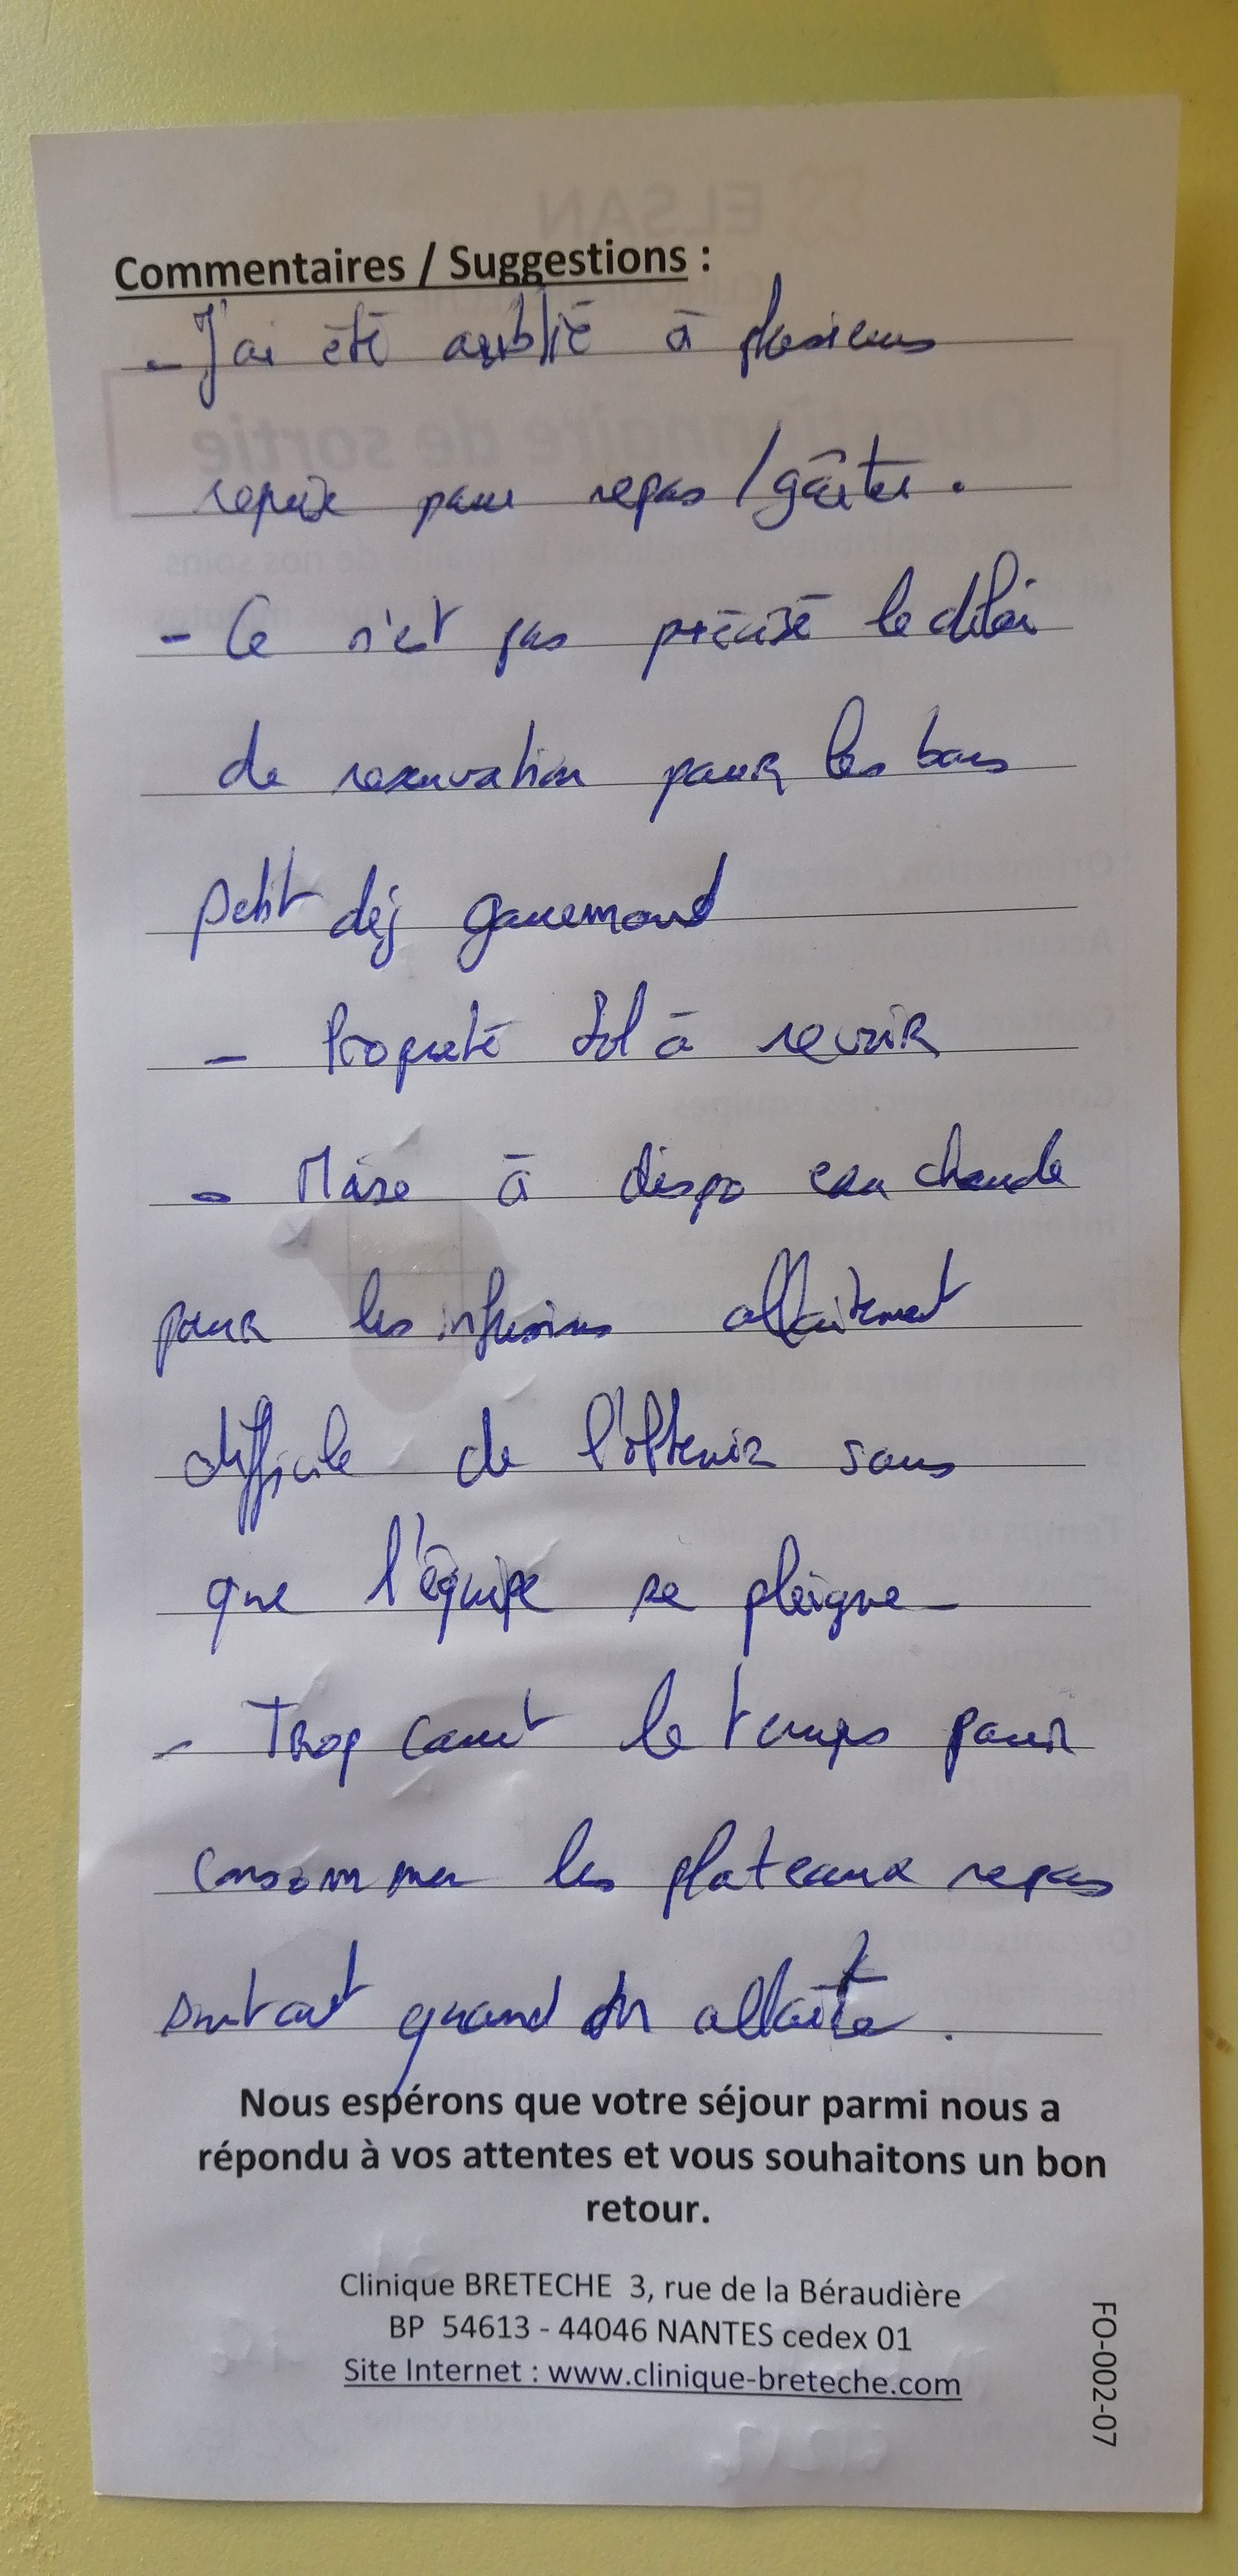 Commentaires / Suggestions :
- J'ai été oublié à plusieurs
reprise pour repas / goûter.
- Ce n'est pas précisé le délai
de reservation pour les bons
petit déj gourmand
- Propreté sol à revoir
- Mise à dispo eau chaude
pour les infusions allaitement
difficile de l'obtenir sans
que l'équipe se pleigne -
- Trop court le temps pour
consommer les plateaux repas
surtout quand on allaite.
Nous espérons que votre séjour parmi nous a
répondu à vos attentes et vous souhaitons un bon
retour.
Clinique BRETECHE 3, rue de la Béraudière
BP 54613 - 44046 NANTES cedex 01
Site Internet : www.clinique-breteche.com
FO-002-07